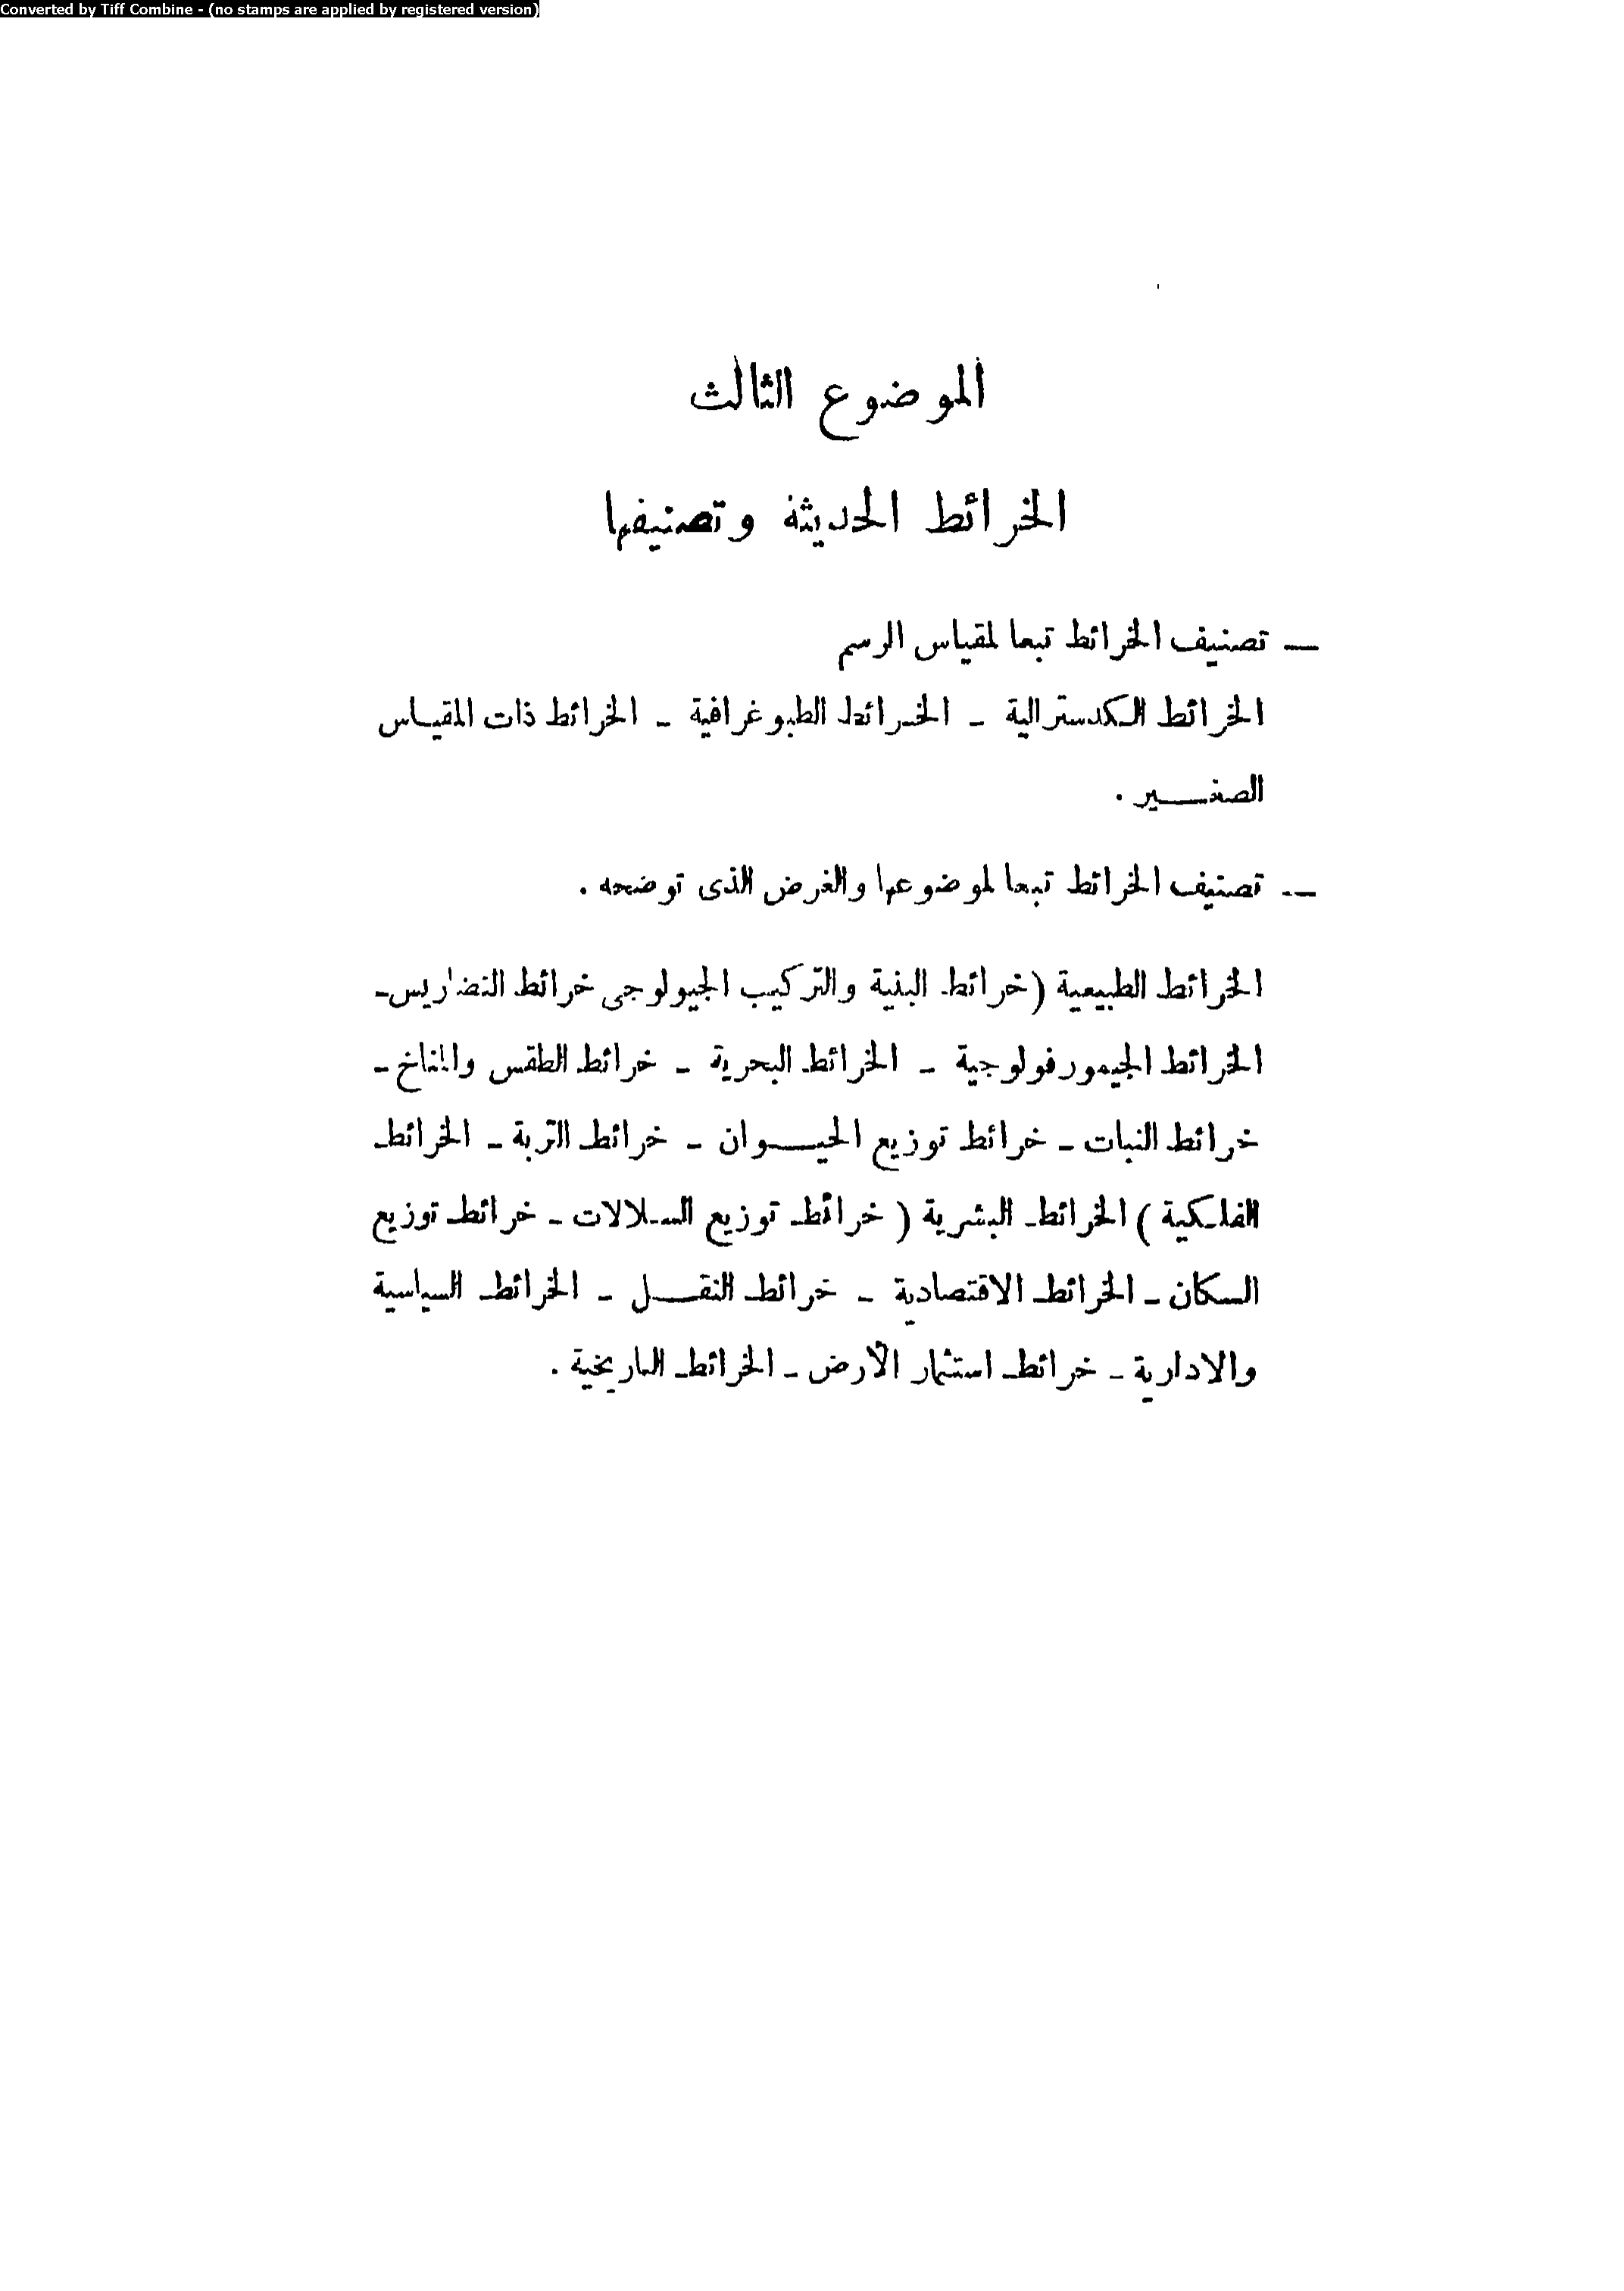 Converted by Tiff Combine - (no stamps are applied by registered version)
الموضوع الثالث
الخرائط الحديثة وتصنيفها
— تصنيف الخرائط تبعا لمقياس الرسم
الخرائط الكدسترالية - الخرائط الطبوغرافية - الخرائط ذات المقياس
الصغير .
— تصنيف الخرائط تبعا لموضوعها والغرض الذى توضحه .
الخرائط الطبيعية (خرائط البنية والتركيب الجيولوجى خرائط التضاريس-
الخرائط الجيمورفولوجية - الخرائط البحرية - خرائط الطقس والمناخ -
خرائط النبات - خرائط توزيع الحيوان - خرائط التربة - الخرائط
الفلكية ) الخرائط البشرية ( خرائط توزيع السلالات - خرائط توزيع
السكان - الخرائط الاقتصادية - خرائط النقل - الخرائط السياسية
والادارية - خرائط استثمار الأرض - الخرائط التاريخية .